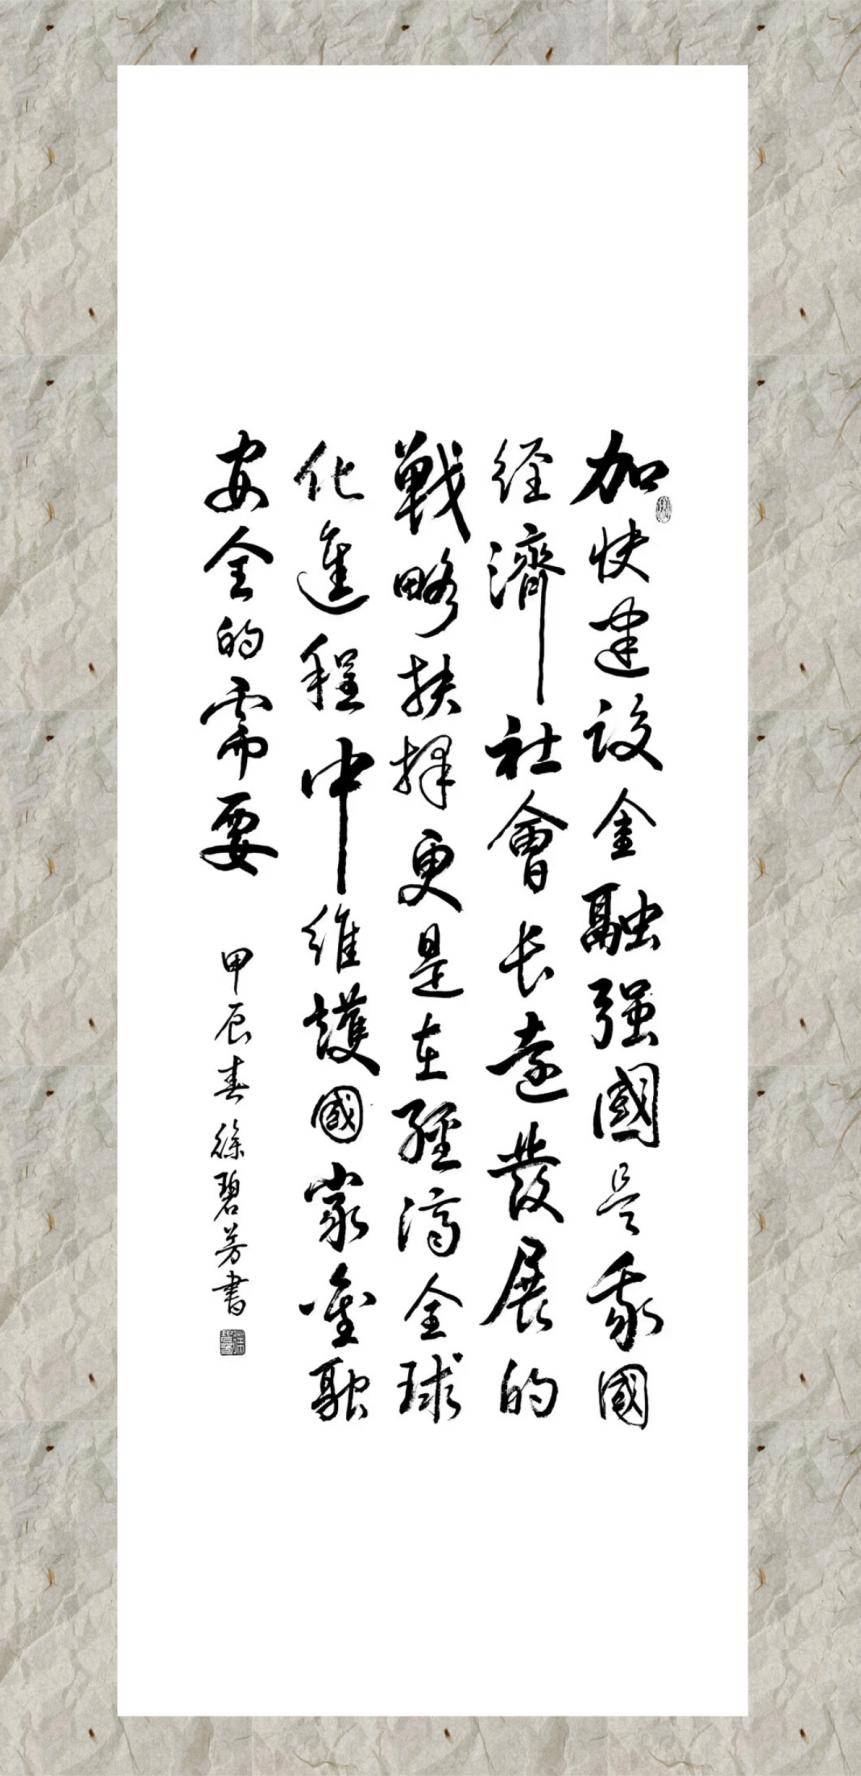 加快建设金融强國是我國
経濟社會长遠發展的
戰略扶擇更是在經濟全球
化進程中維護國家金融
安全的需要
甲辰春徐碧芳書